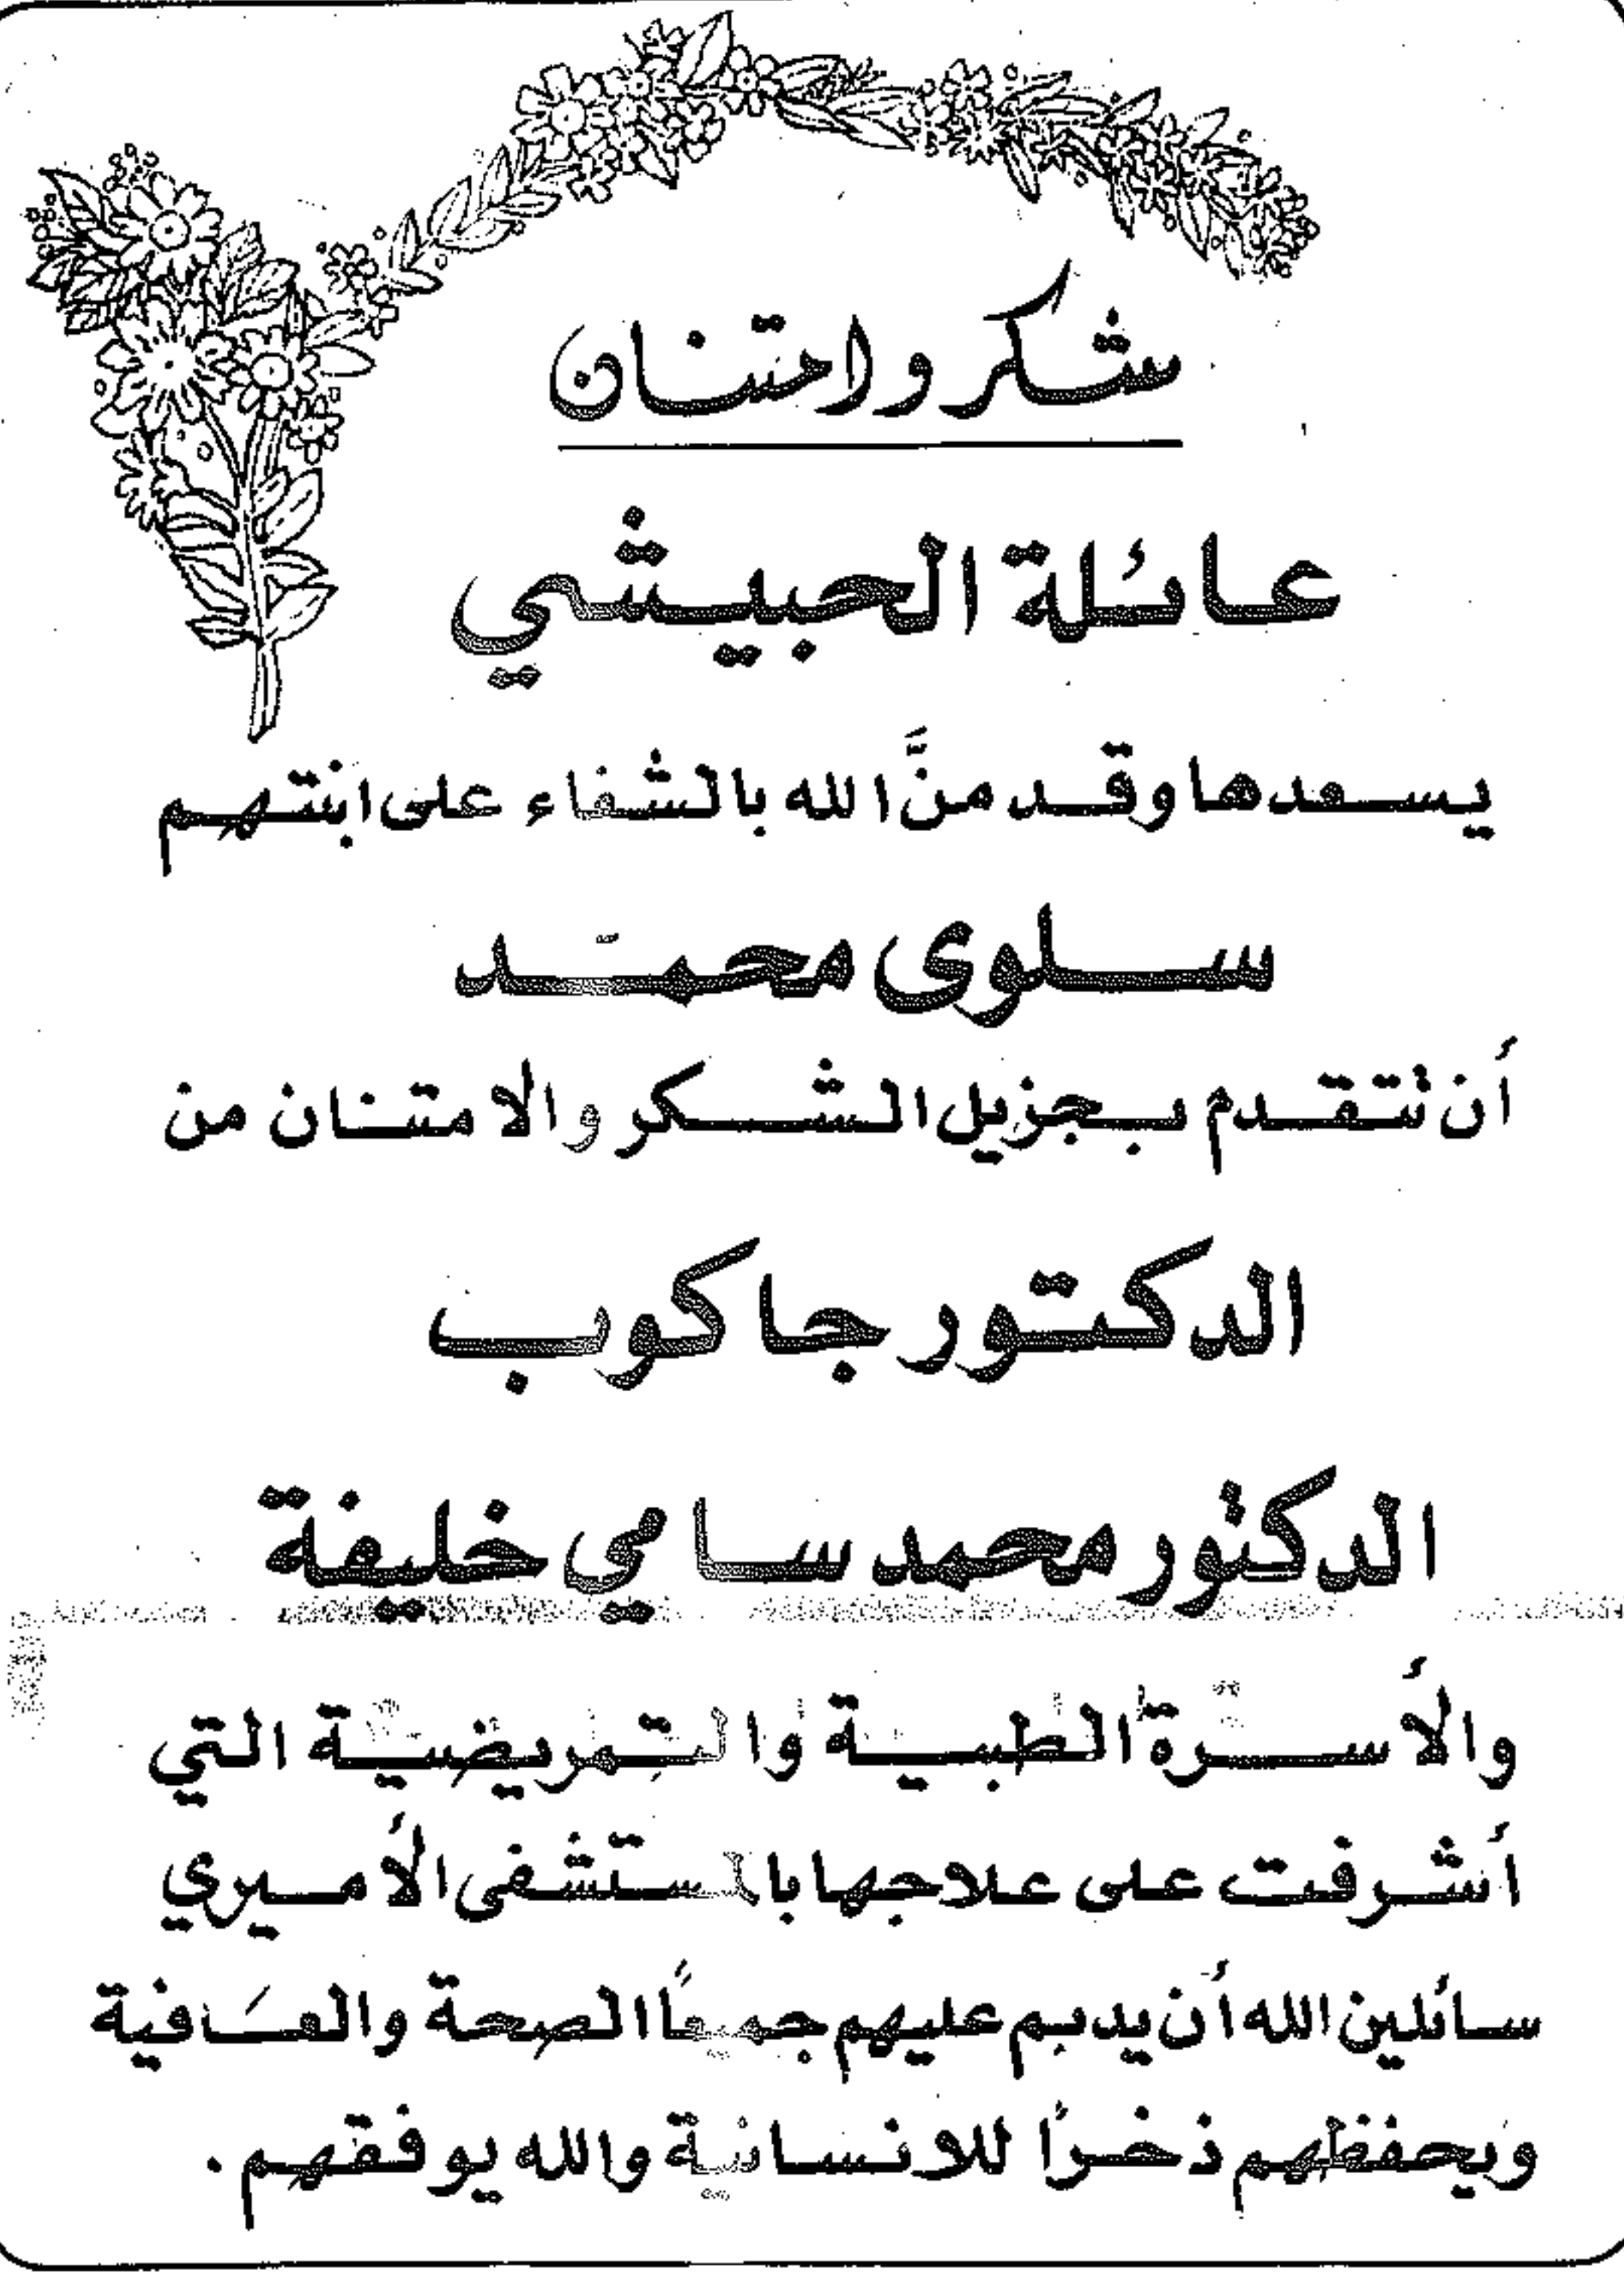 شكر وامتنان
عائلة الحبيشي
يسعدها وقد منَّ الله بالشفاء على ابنتهم
سلوى محمّد
أن تتقدم بجزيل الشكر والامتنان من
الدكتور جاكوب
الدكتور محمد سامي خليفة
والأسرة الطبية والتمريضية التي
أشرفت على علاجها بالمستشفى الأميري
سائلين الله أن يديم عليهم جميعًا الصحة والعَافية
ويحفظهم ذخراً للانسانية والله يوفقهم.